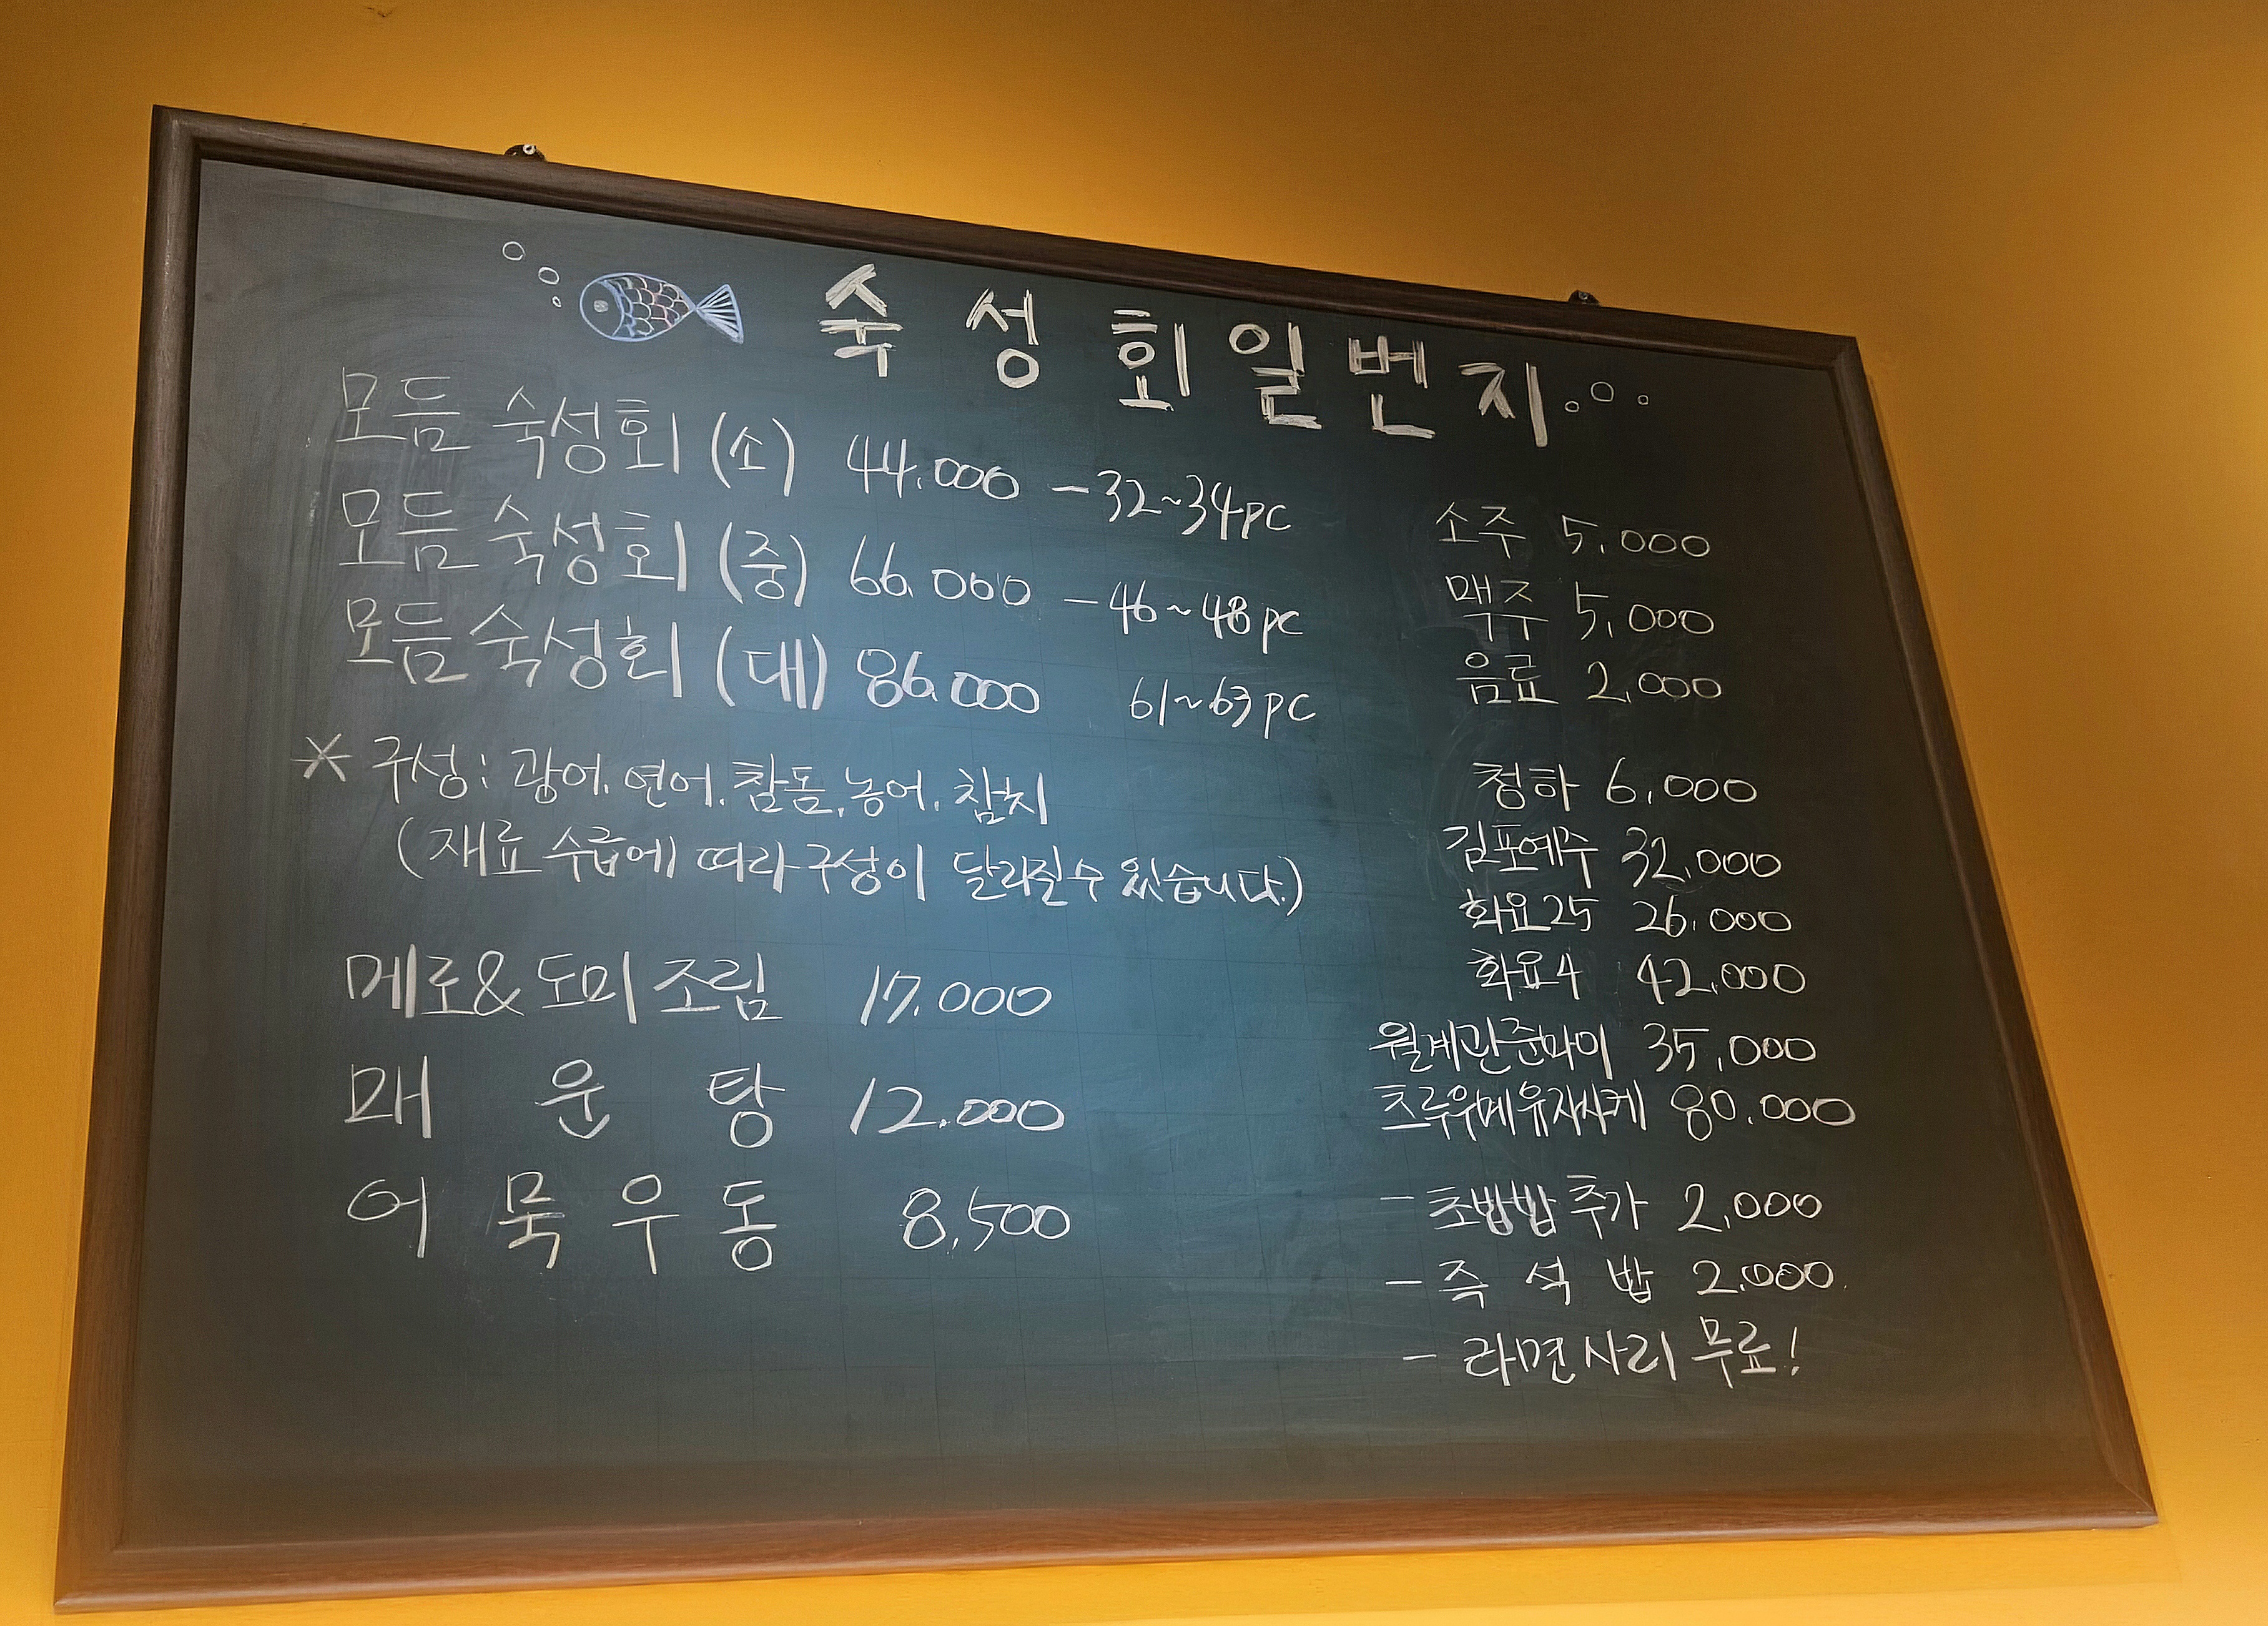 숙성회일번지
모듬 숙성회 (소) 44.000 - 32~34pc
모듬 숙성회 (중) 66.000 - 46~48pc
모듬 숙성회 (대) 86.000 61~63pc
* 구성: 광어. 연어. 참돔. 농어. 참치
(재료 수급에 따라 구성이 달라질 수 있습니다.)
메로&도미 조림 17.000
매 운 탕 12.000
어 묵 우 동 8,500
소주 5.000
맥주 5,000
음료 2,000
청하 6,000
김포예주 32,000
화요25 26.000
화요4 42.000
월계관준마이 35,000
츠루우메유자사케 80.000
- 초밥밥 추가 2,000
- 즉 석 밥 2.000
- 라면사리 무료!